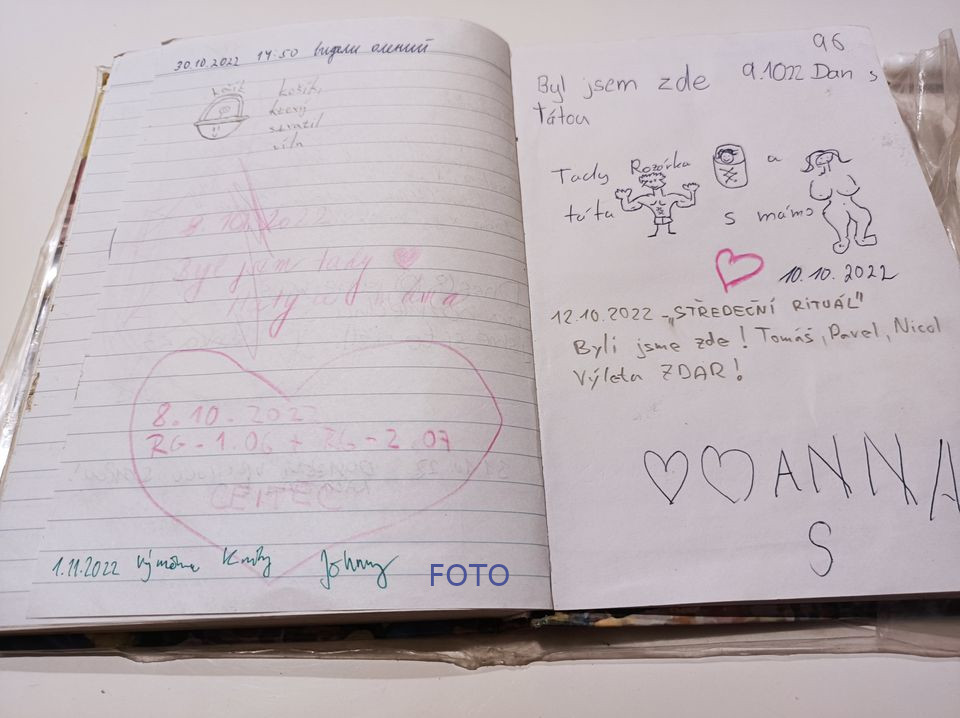 30.10.2022 14:50 видели оленей
košík
který
ztratil
9.10.2022
Byl jsem tady
máma
8.10.2022
RG-1.06 + RG-2.07
1.11.2022 výměna knihy Johnny
FOTO
96
Byl jsem zde 9.1022 Dan s
tátou
Tady Rozárka a
táta s mámo
10.10.2022
12.10.2022 - „STŘEDEČNÍ RITUÁL"
Byli jsme zde! Tomáš, Pavel, Nicol
Výletu ZDAR!
ANNA
S